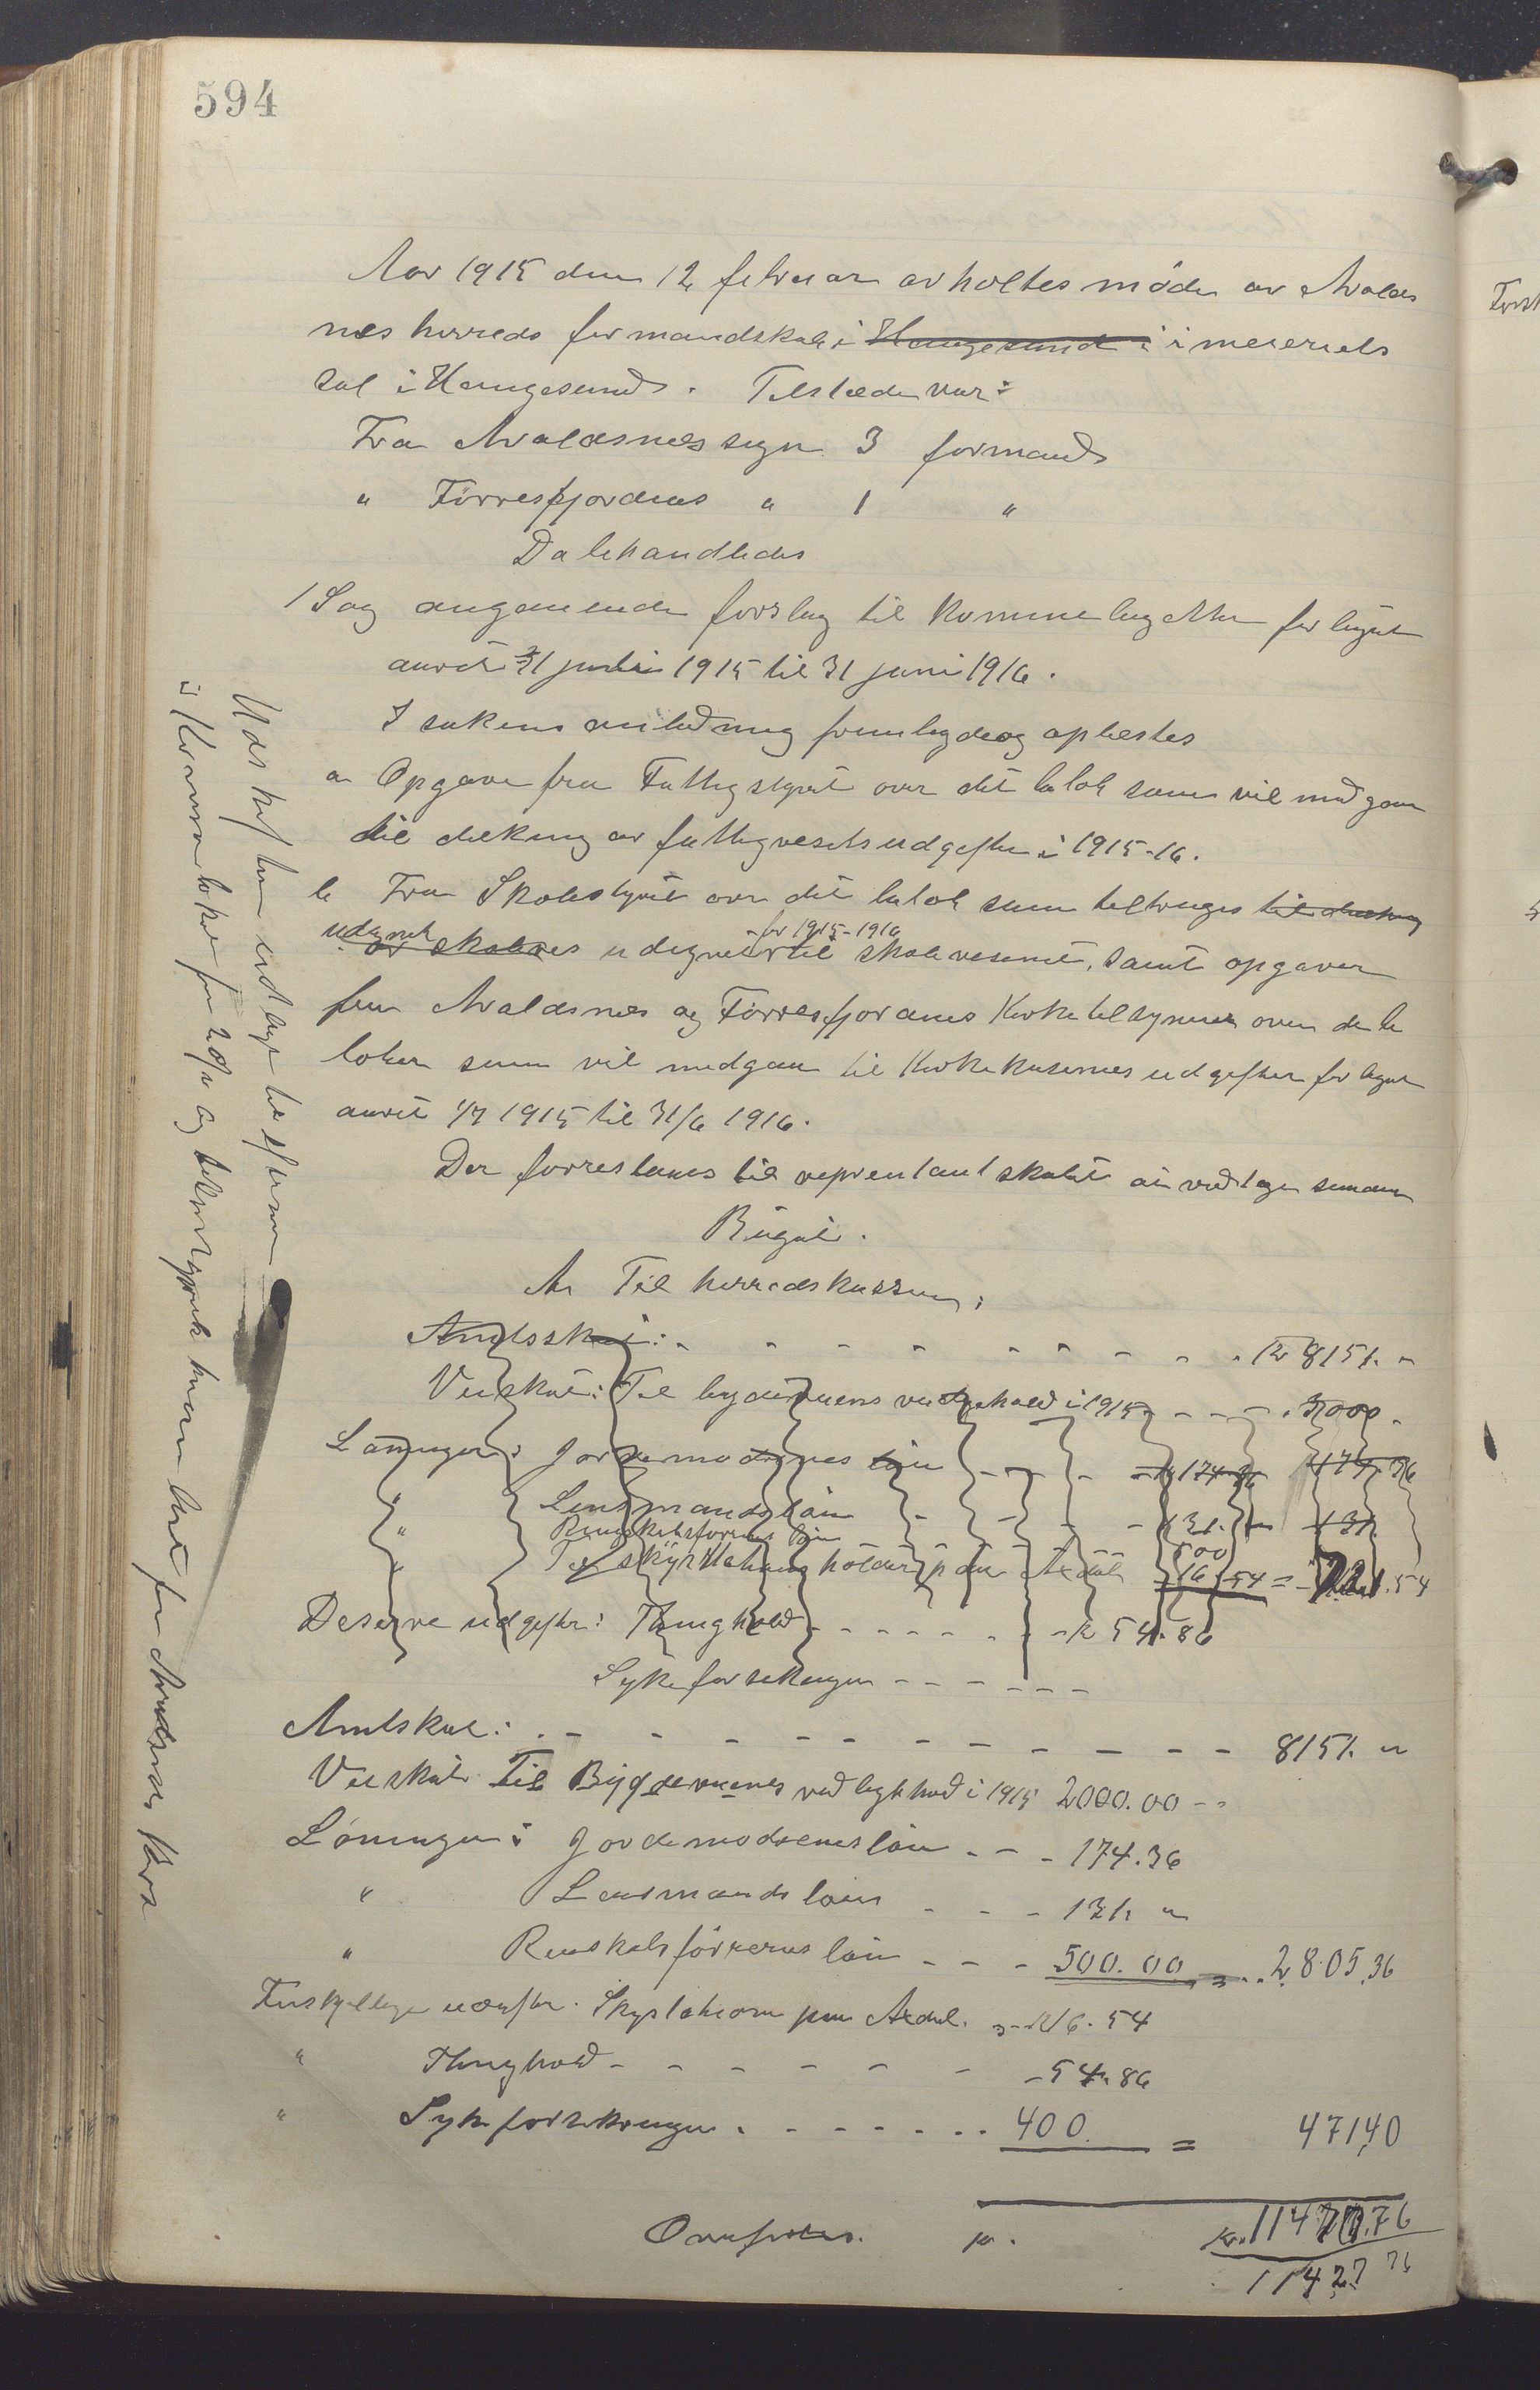 594
Aar 1915 den 12 februar avholtes møde av Avalds
nes herreds formandskab i Haugesund i i meieriets
sal i Haugesund. Tilstede var:
Fra Avaldsnes sogn 3 formænd
" Førresfjordens " 1 "
Da behandledes
1 Sag angaaende forslag til Kommunebugetter for bugjet
aaret 1 juli 1915 til 31 juni 1916.
I sakens anledning fremlagdes og oplæstes
a Opgave fra Fattigstyret over det beløb som vil medgaa
til dækning av fattigvesets udgifter i 1915-16.
b Fra Skolestyret over det beløb som tiltrænges til dækning
av skolenes udgivter til skolevesenet, samt opgaver
for 1915-1916
fra Avaldsnes og Førresfjordens Kirketilsyner over de be
løber som vil medgaa til Kirkekasernes udgifter for bugjet
aaret 1/7 1915 til 31/6 1916.
Der forreslaaes til reprentantskabet at vedtage saadan
Bugjet.
A. Til herredskassen:
Amtsskat: - - - - - - - - Kr 8151. "
Veiskat: Til bygdeveiens vedlikehold i 1915 - - - 3000.
Lønninger: Jordemodrenes løn - - - 174.36 174.36
" Lensmandsløn - - - 131. " 131
" Rengskabsførerens løn 500
" Til skyssstationsholder paa Axdal 16.54 = 721.54
Diserve udgifter: Thinghold - - - - - - kr 54.86
Sykeforsekringen - - - - - -
Amtskat: - - - - - - - - - - 8151. "
Veiskat Til Bygdeveienes vedlighold i 1915 2000.00 - -
Lønninger: Jordemodrenes løn - - - 174.36
" Lensmands løn - - - 131. "
" Renskabsførrerens løn - - - 500.00 = .. 2805.36
Forskjellige udgifter. Skysstation paa Axdal. - - 16.54
" Thinghold - - - - - - - 54.86
" Sykeforsekringen. - - - - - .. 400. = 471,40
Overføres. kr. kr. 11427.76
11427 76